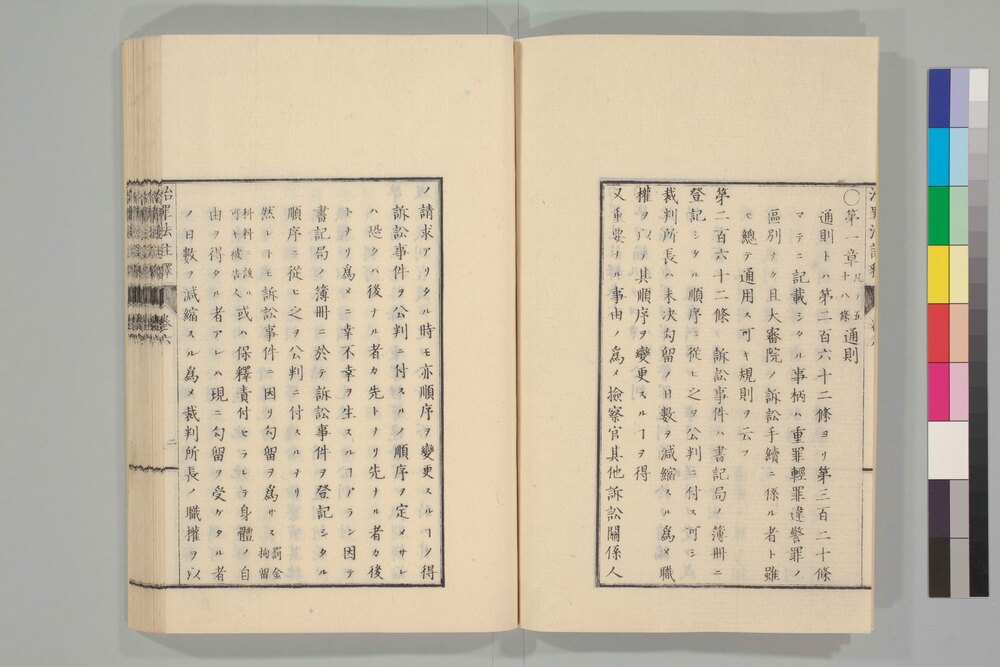 ○第一章 凡ソ五十八條 通則
通則トハ第二百六十二條ヨリ第三百二十條
マテニ記載シタル事柄ハ重罪輕罪違警罪ノ
區別ナク且大審院ノ訴訟手續ニ係ル者ト雖
モ總テ通用ス可キ規則ヲ云フ
第二百六十二條 訴訟事件ハ書記局ノ簿冊ニ
登記シタル順序ニ從ヒ之ヲ公判ニ付ス可シ
裁判所長ハ未決勾留ノ日數ヲ減縮スル爲メ職
權ヲ以テ其順序ヲ變更スルヿヲ得
又重要ナル事由ノ爲メ檢察官其他訴訟關係人
ノ請求アリタル時モ亦順序ヲ變更スルヿヲ得
訴訟事件ヲ公判ニ付スルノ順序ヲ定メサレ
ハ恐クハ後ナル者カ先トナリ先ナル者カ後
トナリ爲メニ幸不幸ヲ生スルヿアラン因テ
書記局ノ簿冊ニ於テ訴訟事件ヲ登記シタル
順序ニ從ヒ之ヲ公判ニ付スルナリ
然レトモ訴訟事件ニ因リ勾留ヲ爲サス 罰金拘留
科料ニ該ル可キ被告人 或ハ保釋責付セラレテ身體ノ自
由ヲ得タル者アレハ現ニ勾留ヲ受ケタル者
ノ日數ヲ減縮スル爲メ裁判所長ノ職權ヲ以
治罪法註釋 卷六
二